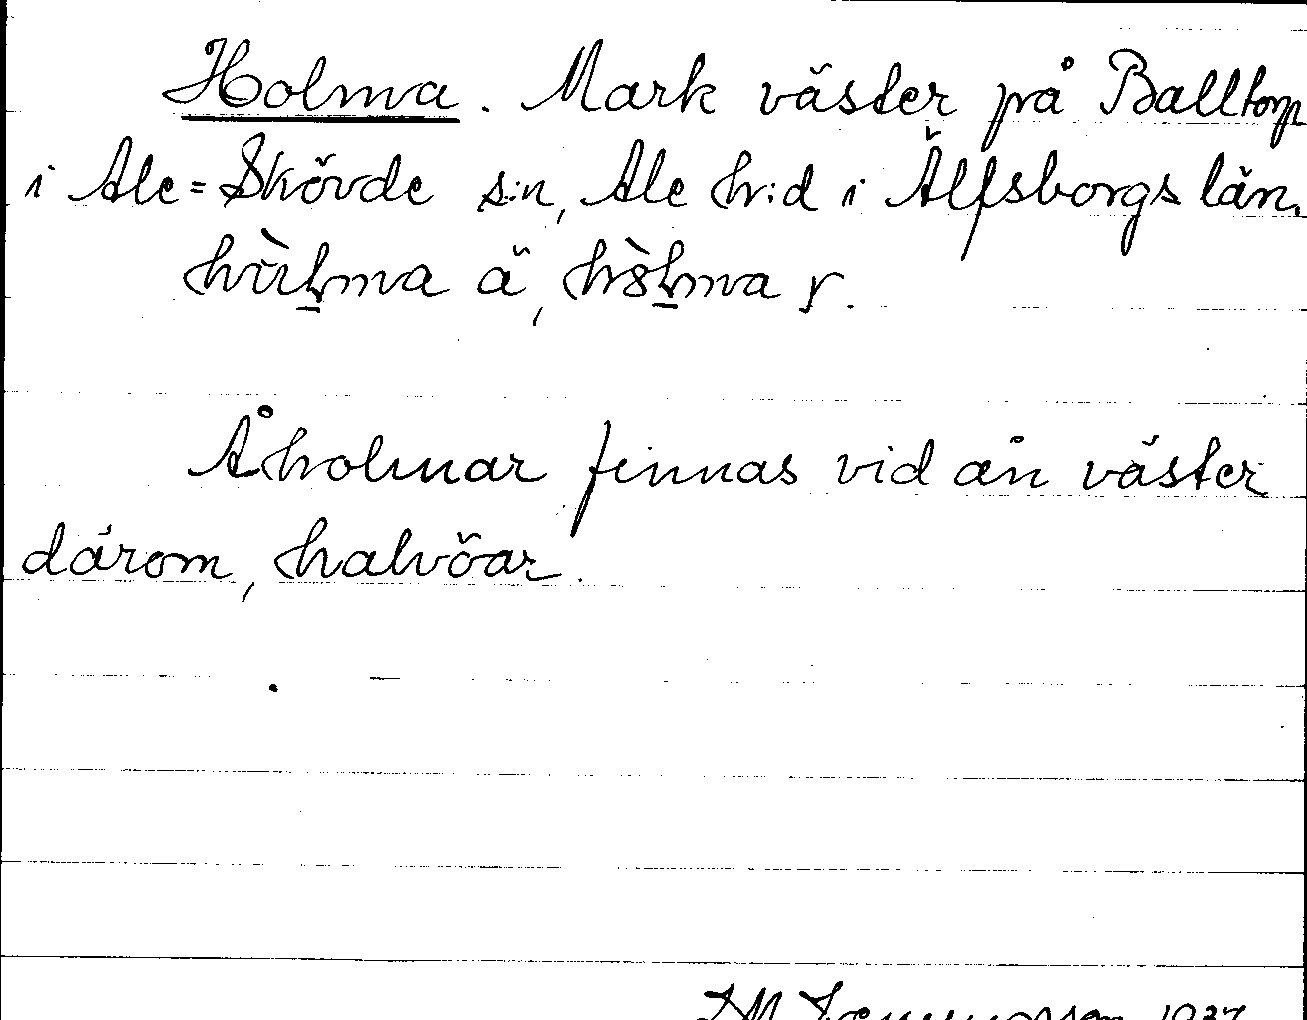 Holma. Mark väster på Balltorp
i Ale=Skövde s:n, Ale h:d i Älfsborgs län.
ä, y.
Åholmar finnas vid ån väster
därom, halvöar.